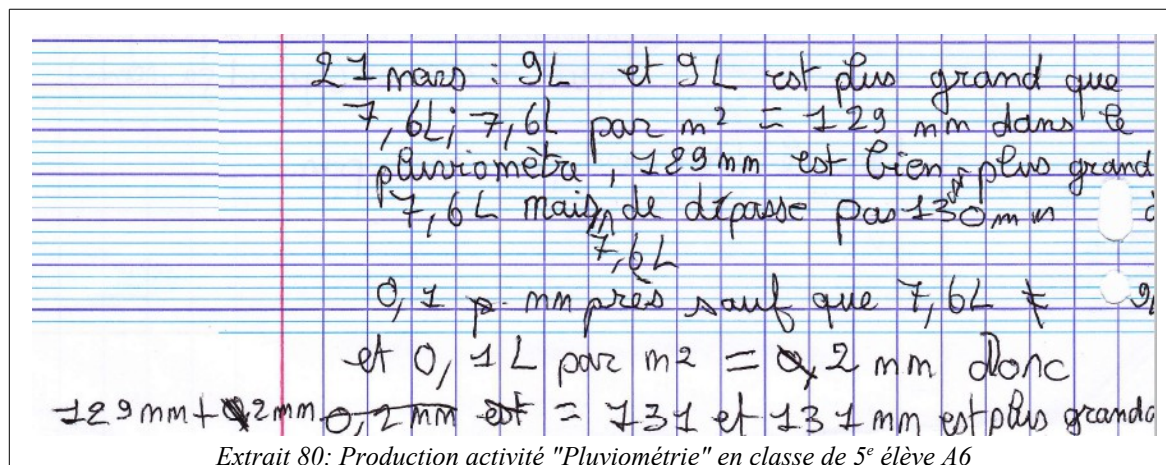 21 mars : 9L et 9L est plus grand que
7,6L; 7,6L par m² = 129 mm dans le
pluviomètra, 129mm est bien plus grand
7,6L mais de dépasse pas 130mm
7,6L
0,1 mm près sauf que 7,6L ≠ 9
et 0,1L par m2 = 2 mm Donc
129mm + 2mm 0,2 mm est = 131 et 131mm est plus grand
Extrait 80: Production activité "Pluviométrie" en classe de 5e élève A6